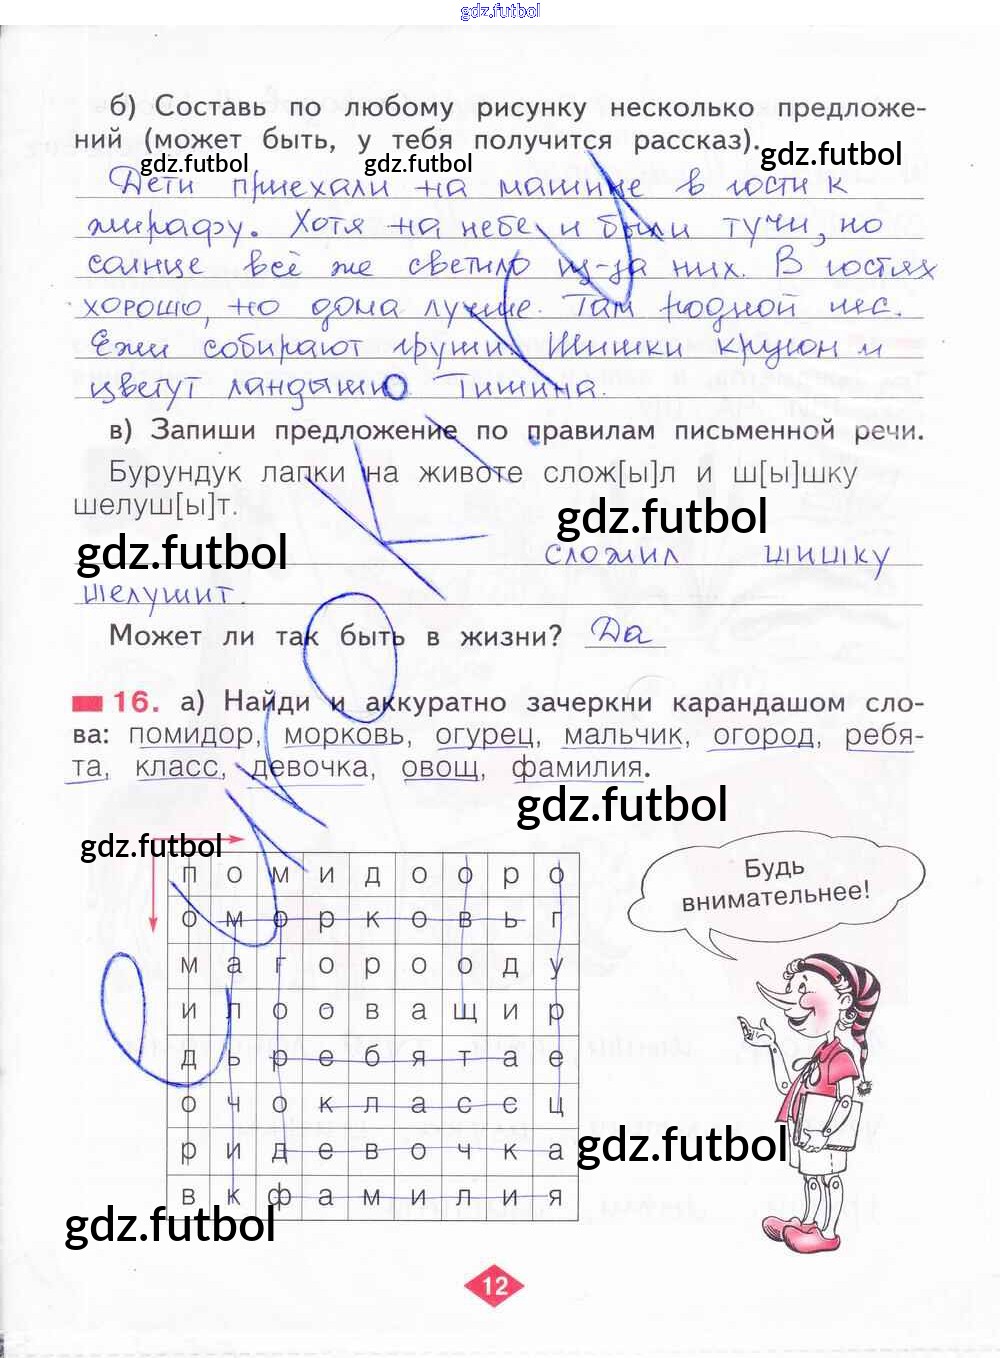 gdz.futbol
б) Составь по любому рисунку несколько предложе-
ний (может быть, у тебя получится рассказ).
gdz.futbol gdz.futbol gdz.futbol
Дети приехали на машине в гости к
жирафу. Хотя на небе и были тучи, но
солнце всё же светило из-за них. В гостях
хорошо, но дома лучше. Там родной лес.
Ежи собирают груши. Шишки кругом и
цветут ландыши. Тишина.
в) Запиши предложение по правилам письменной речи.
Бурундук лапки на животе слож[ы]л и ш[ы]шку
шелуш[ы]т.
gdz.futbol
gdz.futbol сложил шишку
шелушит.
Может ли так быть в жизни? Да
16. а) Найди и аккуратно зачеркни карандашом сло-
ва: помидор, морковь, огурец, мальчик, огород, ребя-
та, класс, девочка, овощ, фамилия.
gdz.futbol
gdz.futbol
п о м и д о о р о
о м о р к о в ь г
м а г о р о о д у
и л о о в а щ и р
д ь р е б я т а е
о ч о к л а с с ц
р и д е в о ч к а
в к ф а м и л и я
Будь
внимательнее!
gdz.futbol
gdz.futbol
12